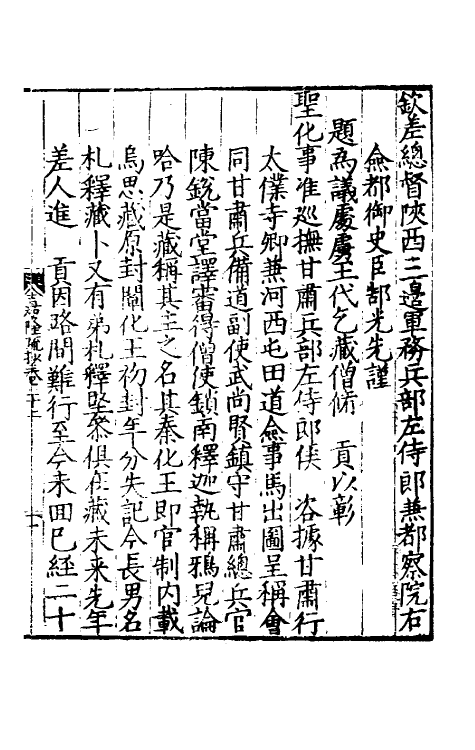 欽差總督陝西三邊軍務兵部左侍郎兼都察院右
僉都御史臣郜光先謹
題為議處虜王代乞藏僧脩 貢以彰
聖化事准巡撫甘肅兵部左侍郎侯 咨據甘肅行
太僕寺卿兼河西屯田道僉事馬出圖呈稱會
同甘肅兵備道副使武尚賢鎮守甘肅總兵官
陳銳當堂譯審得僧使鎖南釋迦執稱鴉兒論
哈乃是藏稱其主之名其秦化王即官制內載
烏思藏原封闡化王初封年分失記今長男名
札釋藏卜又有弟札釋堅參俱在藏未来先年
差人進 貢因路間難行至今未回已經二十